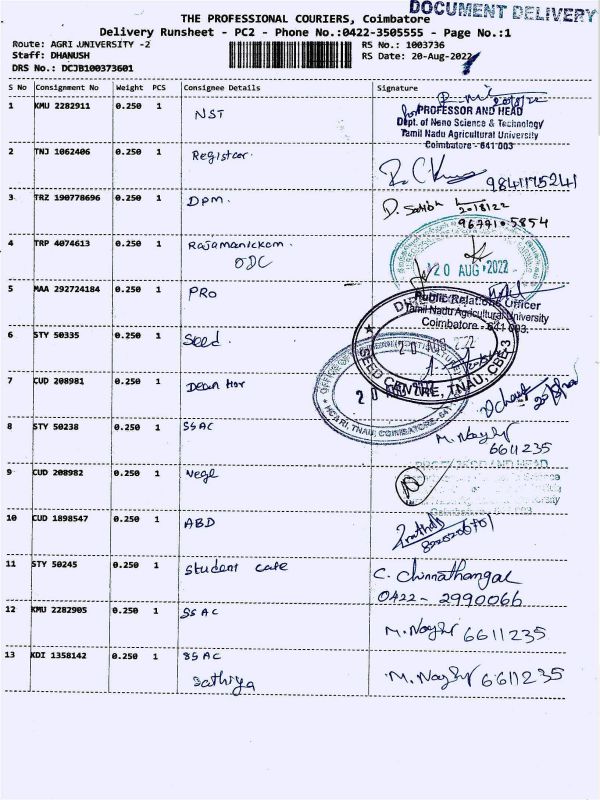 DOCUMENT DELIVERY
THE PROFESSIONAL COURIERS, Coimbatore
Delivery Runsheet - PC2 - Phone No.:0422-3505555 - Page No.:1
Route: AGRI UNIVERSITY -2
Staff: DHANUSH
DRS No.: DCJB100373601
RS No.: 1003736
RS Date: 20-Aug-2022
S No Consignment No Weight PCS Consignee Details Signature
1 KMU 2282911 0.250 1 NST
PROFESSOR AND HEAD
Dept. of Nano Science & Technology
Tamil Nadu Agricultural University
Coimbatore - 641 003
2 TNJ 1062406 0.250 1 Registrar.
9841175241
3 TRZ 190778696 0.250 1 DPM.
D. Sathish
9677105854
4 TRP 4074613 0.250 1 Rajamanickam.
ODC
20 AUG 2022
5 MAA 292724184 0.250 1 PRO
Public Relations Officer
Tamil Nadu Agricultural University
Coimbatore - 641 003.
6 STY 50335 0.250 1 Seed.
20 AUG 2022
SEED CENTRE, TNAU, CBE-3
7 CUD 208981 0.250 1 Dean Hor
HC&RI, TNAU, COIMBATORE - 641
8 STY 50238 0.250 1 SSAC
6611235
9 CUD 208982 0.250 1 Vege
PROFESSOR AND HEAD
10 CUD 1898547 0.250 1 ABD
11 STY 50245 0.250 1 Student cafe
C. Chinnathangal
0422- 2990066
12 KMU 2282905 0.250 1 SSAC
6611235
13 KDI 1358142 0.250 1 SSAC
Sathiya
6611235